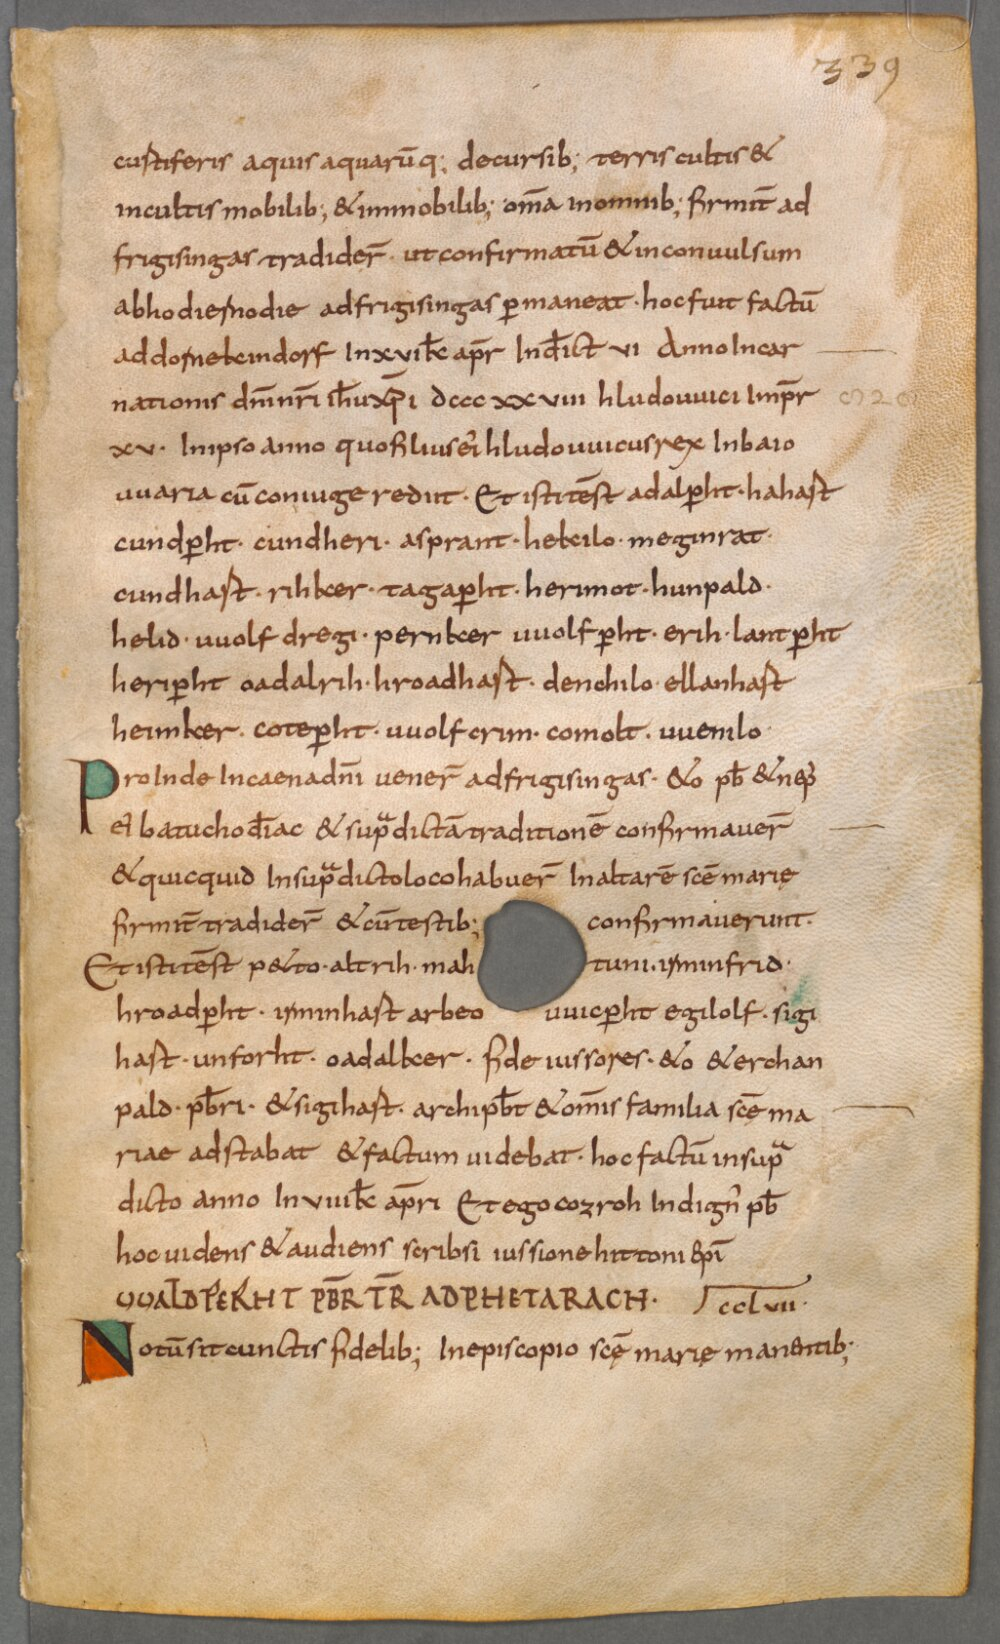 339
custiferis aquis aquarūq; decursib; terris cultis &
incultis mobilib; & inmobilib; om̄a inomnib; firmit̄ ad
frigisingas tradider̄ · ut confirmatū & inconuulsum
abhodiernodie adfrigisingas p̲maneat · hoc fuit factū
addornekindorf In xvi kł apr̄ Indict̄ vi Anno Incar
nationis dn̄i nr̄i ih̄u xp̄i dcccxxviii hludouuici Imp̄r
xv · In ipso anno quo filius ei hludouuicus rex In baio
uuaria cū coniuge rediit · Et isti test̄ adalp̲ht · hahast
cundp̲ht · cundheri · asprant · hekilo · meginrat ·
cundhast · rihker · tagap̲ht · herimot · hunpald ·
helid · uuolfdregi · pernker uuolfp̲ht · erih · lantp̲ht
herip̲ht oadalrih · hroadhast · denchilo · ellanhast
heimker · cotep̲ht · uuolfcrim · comolt · uuenilo
Pro Inde In caena dn̄i uener̄ adfrigisingas · &o pb̄ & nep̄
ei batucho diac̄ & supͣdictā traditionē confirmauer̄
& quicquid In supͣdicto loco habuer̄ In altarē sc̄ę marię
firmit̄ tradider̄ & cū testib; confirmauerunt ·
Et isti test̄ p&to · altrih · mahtuni · irminfrid ·
hroadp̲ht · irminhast arbeo uuicp̲ht egilolf · sigi
hast · unforht · oadalker · fideiussores · &o & erchan
pald · pb̄ri · & sigihast · archipb̄t & om̄is familia sc̄ę ma
riae adstabat & factum uidebat · hoc factū in supͣ
dicto anno In viii kł apr̄i Et ego cozroh Indign̄ pb̄
hoc uidens & audiens scribsi iussione hittoni ep̄i
UUALDPERHT PB̄R TR̄ AD PHETARACH · cclvii ·
Notū sit cunctis fidelib; In episcopio sc̄ę marię manentib;